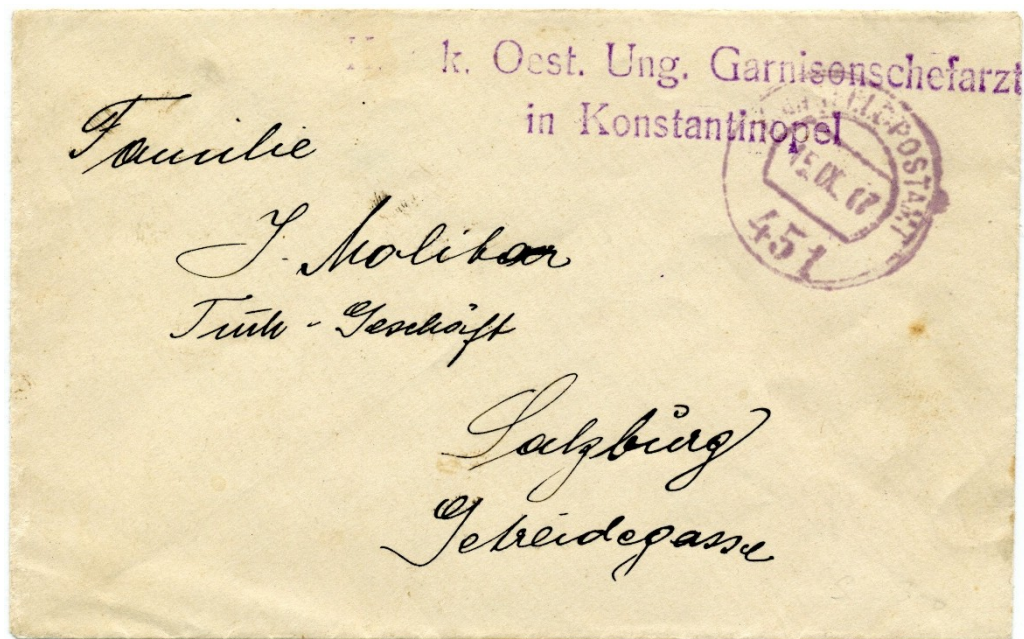 k. Oest. Ung. Garnisonschefarzt
in Konstantinopel
FELDPOSTAMT
15. IX. 17
451
Familie
J. Molibar
Tuch-Geschäft
Salzburg
Getreidegasse